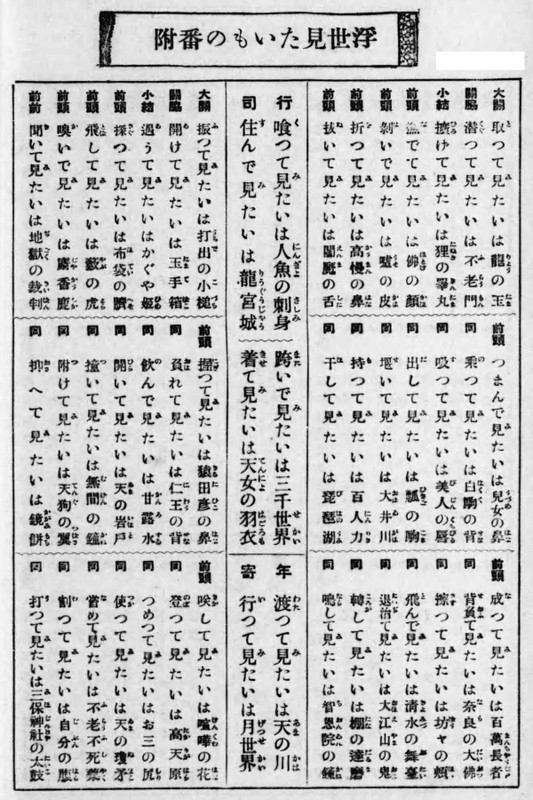 浮世見たいもの番附
大關 取つて見たいは龍の玉
關脇 潜つて見たいは不老門
小結 擴げて見たいは狸の睾丸
前頭 撫でて見たいは佛の顔
前頭 剝いで見たいは嘘の皮
前頭 折つて見たいは高慢の鼻
前頭 拔いて見たいは閻魔の舌
前頭 つまんで見たいは女の鼻
同 乘つて見たいは白駒の背
同 吸つて見たいは美人の唇
同 出して見たいは瓢の駒
同 堰いて見たいは大井川
同 持つて見たいは百人力
同 干して見たいは琵琶湖
前頭 成つて見たいは百萬長者
同 背負て見たいは奈良の大佛
同 擦つて見たいは坊ャの頰
同 飛んで見たいは清水の舞臺
同 退治て見たいは大江山の鬼
同 轉して見たいは棚の達磨
同 鳴して見たいは智恩院の鐘
行司
喰つて見たいは人魚の刺身
住んで見たいは龍宮城
跨いで見たいは三千世界
着て見たいは天女の羽衣
年寄
渡つて見たいは天の川
行つて見たいは月世界
大關 振つて見たいは打出の小槌
關脇 開けて見たいは玉手箱
小結 遇うて見たいはかぐや姬
前頭 探つて見たいは布袋の臍
前頭 飛して見たいは藪の虎
前頭 嗅いで見たいは麝香鹿
前頭 聞いて見たいは地獄の裁判
前頭 握つて見たいは猿田彦の鼻
同 負れて見たいは仁王の背
同 飲んで見たいは甘露水
同 開いて見たいは天の岩戸
同 撞いて見たいは無間の鐘
同 附けて見たいは天狗の翼
同 抑へて見たいは鏡餠
前頭 咲して見たいは喧嘩の花
同 登つて見たいは高天原
同 つめつて見たいはお三の尻
同 使つて見たいは天の瓊矛
同 甞めて見たいは不老不死藥
同 割つて見たいは自分の膓
同 打つて見たいは三保神社の太鼓